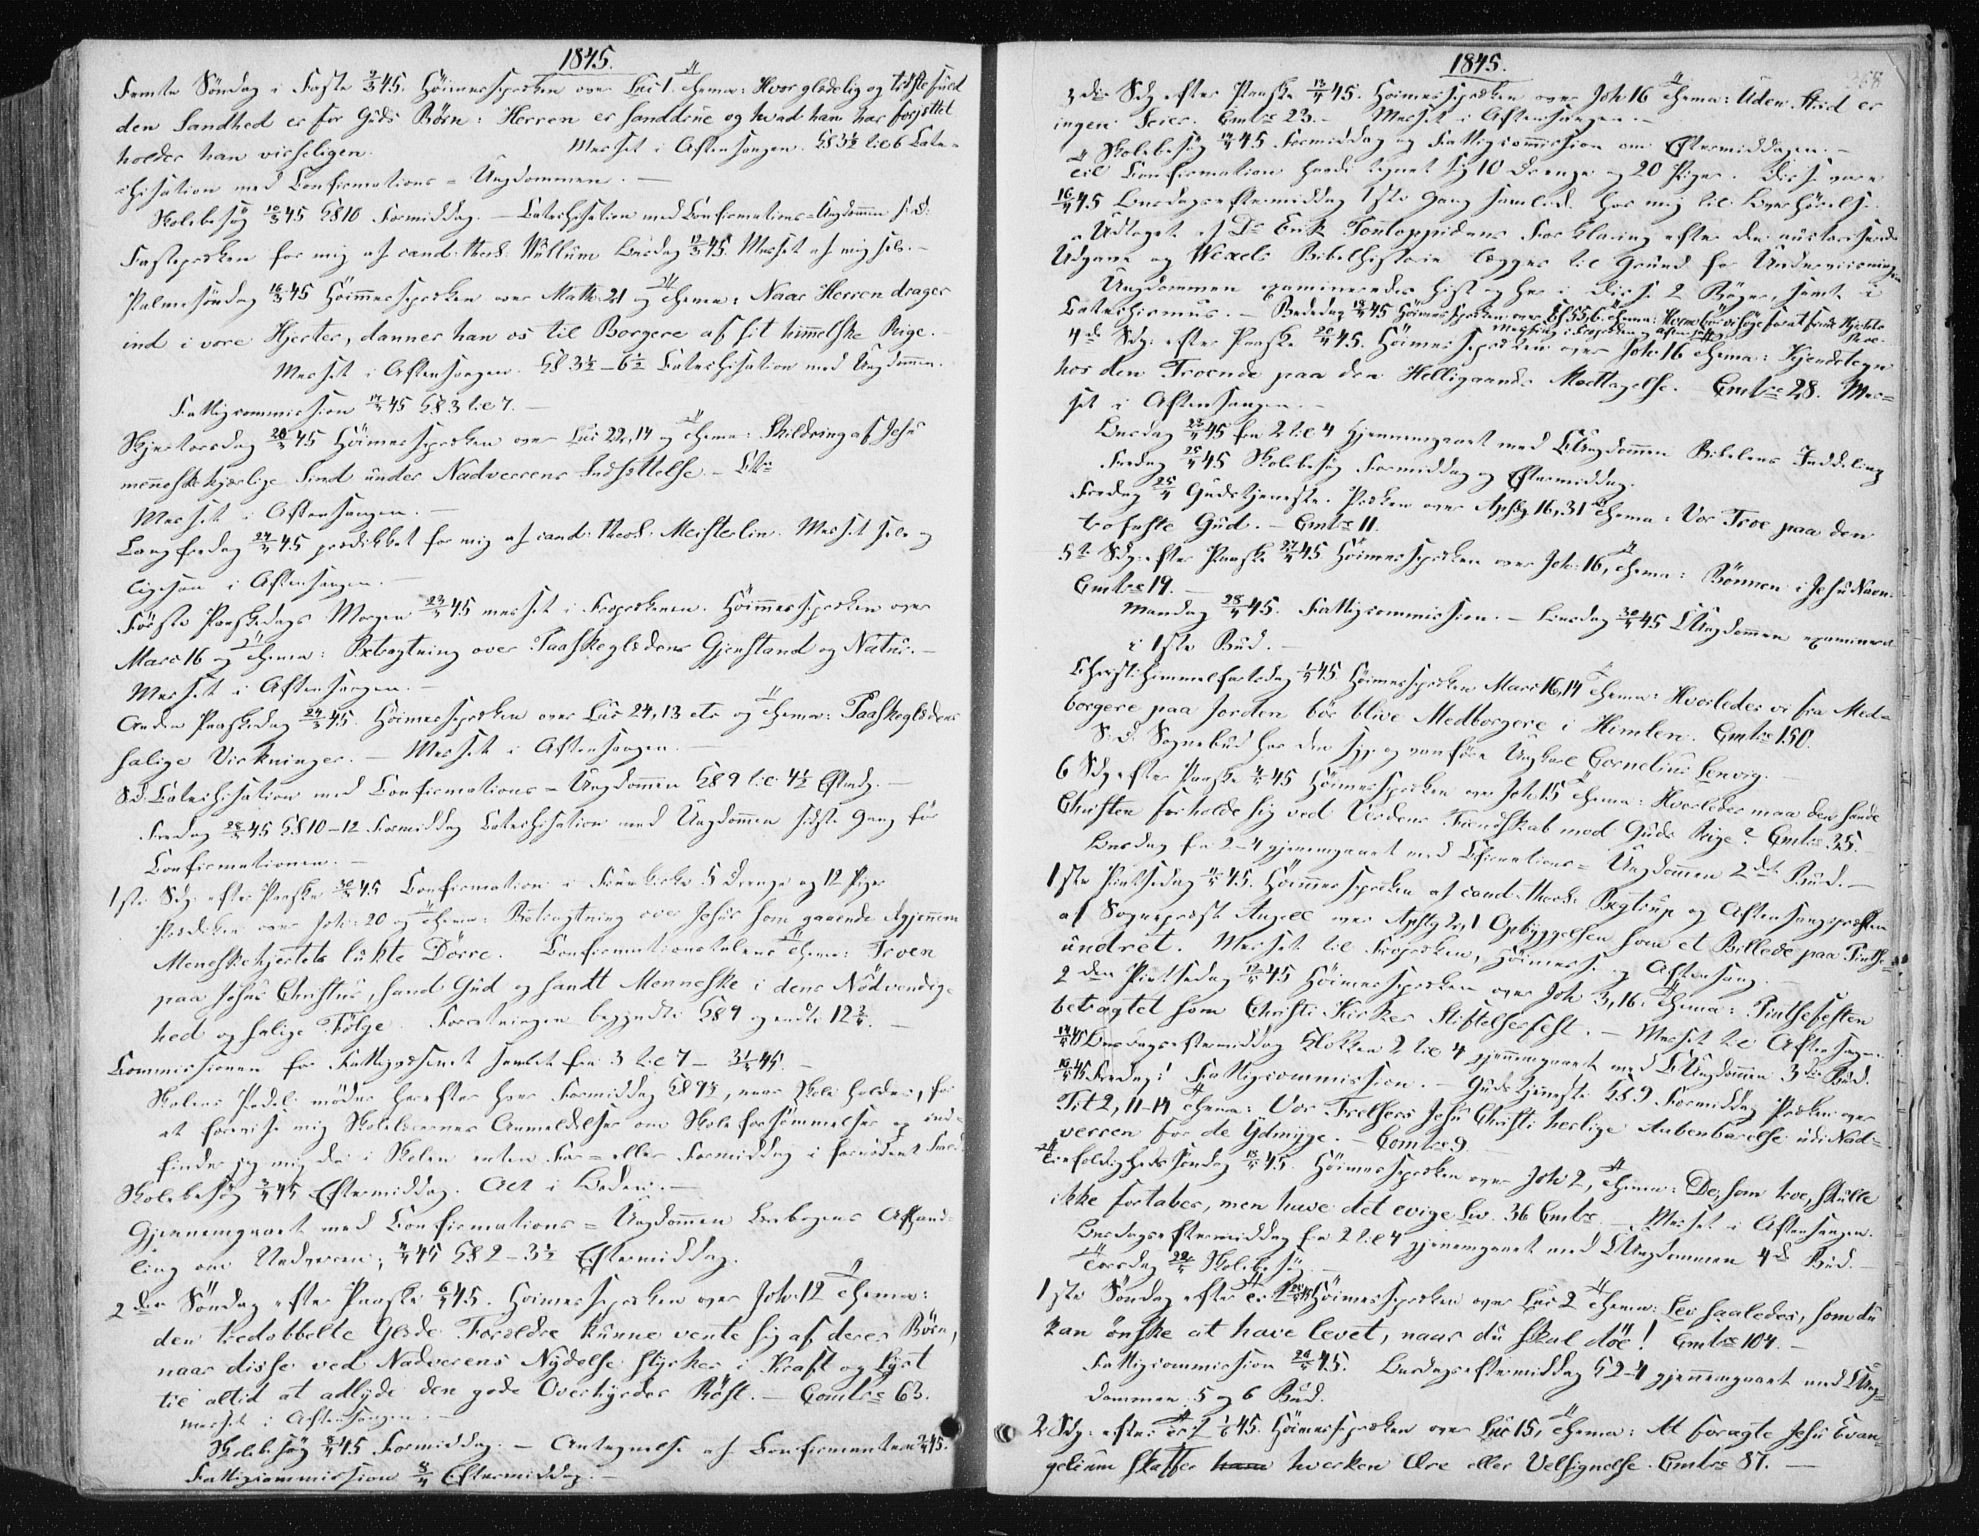 1845.
Femte Söndag i Faste 9/3 45. Höimesseprœken over Luc 1. Thema: Hvor glædelig og
den Sandhed er for Guds Börn: Herren er sanddrue og hvad han har forjættet
holder han visseligen. Messet i Aftensangen. Kl 3½ til 6 Cate-
chisation med Confirmations-Ungdommen. —
Skolebesög 10/3 45 Kl 10 Formiddag. — Catechisation med Confirmations-Ungdommen s. D.
Fasteprœken for mig af cand. theol. Wullum Onsdag 12/3 45. Messet af mig selv. —
Palmesöndag 16/3 45 Höimesseprœken over Math. 21 og Thema: Naar Herren drager
ind i vore Hjerter, danner han os til Borgere af sit himmelske Rige. —
Messet i Aftensangen. Kl 3½ – 6½ Catechisation med Ungdommen.
Fattigcommission 17/3 45 Kl 3 til 7. —
Skjertorsdag 20/3 45 Höimesseprœken over Luc 22,14 og Thema: Skildring af Jesu
menneskekjærlige Sind under Nadverens Indstiftelse. —
Messet i Aftensangen. —
Langfredag 45 prædikket for mig af cand. theol. Meisterlin. Messet selv og
ligesaa i Aftensangen. —
Förste Paaskedags Morgen 23/3 45 messet i Froprœkenen. Höimesseprœken over
Marc 16 og Thema: Betragtning over Paaskeglædens Gjenstand og Natur. —
Messet i Aftensangen. —
Anden Paaskedag 24/3 45. Höimesseprœken over Luc 24,13 etc og Thema: Paaskeglædens
salige Virkninger. — Messet i Aftensangen. —
S.D. Catechisation med Confirmations-Ungdommen Kl 9 til 4½ Efterm. —
Fredag 28/3 45 Kl 10–12 Formiddag Catechisation med Ungdommen sidste Gang för
Confirmationen. —
1ste Sdg. efter Paaske 30/3 45 Confirmation i 5 Drenge og 12 Piger
Prædiken over Joh. 20 og Thema: Betragtning over Jesus som gaaende igjennem
Menneskehjertets lukte Dörre. Confirmationstalens Thema: Troen
paa Jesus Christus, sand Gud og sandt Menneske i dens Nödvendig-
hed og salige Fölge. Forretningen begyndte Kl 9 og endte 12¾. —
Commissionen for Fattigvæsenet samlet fra 3 til 7 – 31/3 45. —
Skolens Pedel möder herefter hver Formiddag Kl 9½, naar Skole holdes, for
at forevise mig Skolelærernes Anmeldelser om Skoleforsömmelser og ind-
finder jeg mig da i Skolen enten For- eller
Skolebesög 3/4 45 Eftermiddag. Alt i Orden. —
Gjennemgaaet med Confirmations-Ungdommen Lærebogens Afhand-
ling om Nadveren, 4/4 45 Kl 2 – 3½ Eftermiddag.
2den Söndag efter Paaske 6/4 45. Höimesseprœken over Joh. 12 Thema:
den tredobbelte Glæde Forældre kunne vente sig af deres Börn,
naar disse ved Nadverens Nydelse styrkes i Kraft og Lyst
til altid at adlyde den gode Overhyrdes Röst. — Comtre 63.
Messet i Aftensangen. —
Skolebesög 8/4 45 Formiddag. — Antegnelse af Confirmanterne 45.
Fattigcommission 8/4 Eftermiddag. —
1845.
368
3die Sdg efter Paaske 13/4 45. Höimesseprœken over Joh 16 Thema: Uden Strid er
ingen Seier. Comtre 23. — Messet i Aftensangen. —
Skolebesög 45 Formiddag og Fattigcommission om Eftermiddagen. —
Til Confirmation havde tegnet sig 10 Drenge og 20 Piger. Disse vare
16/4 45 Onsdagseftermiddag 1ste Gang samlede hos mig til Overhörelse.
Udtoget af Dr Erik Pontoppidans Forklaring efter den autoriserede
Udgave og Wexels Bibelhistorie lægges til Grund for Underviisningen.
Ungdommen examineredes hist og her i disse 2 Böger, samt i
Catechismus. — Bededag 18/4 45 Höimesseprœken over Es 55,6. Thema:
Messet i Froprœken og Aftensang.
4de Sdg. efter Paaske 20/4 45. Höimesseprœken over Joh 16 Thema: Kjendetegn
hos den Troende paa den Helligaands Modtagelse. Comtre 28. Mes-
set i Aftensangen. —
Onsdag 23/4 45 fra 2 til 4 gjennemgaaet med CUngdommen Bibelens Inddeling
Fredag 25/4 45 Skolebesög Formiddag og Eftermiddag.
Fredag 25/4 Gudstjeneste. Prœken over Apstg 16,31 Thema: Vor Troe paa den
trofaste Gud. — Comtre 11.
5te Sdg. efter Paaske 27/4 45 Höimesseprœken over Joh. 16, Thema: Bönnen i Jesu Navn.
Comtre 19. —
Mandag 28/4 45. Fattigcommission. — Onsdag 30/4 45 CUngdommen examineret
i 1ste Bud. —
Christi Himmelfartsdag 1/5 45. Höimesseprœken Marc 16,14 Thema: Hvorledes vi fra Med-
borgere paa Jorden bör blive Medborgere i Himlen. Comtre 150.
S. D. Sognebud hos den syge og vanföre Ungkarl Cornelius Lenvig. —
6 Sdg efter Paaske 4/5 45 Höimesseprœken over Joh 15 Thema: Hvorledes maa den sande
Christen forholde sig ved Verdens Fiendskab mod Guds Rige? Comtre 35. —
Onsdag fra 2–4 gjennemgaaet med Confirmations-Ungdommen 2det Bud. —
1ste Pintsedag 11/5 45. Höimesseprœken af cand. theol. Bugtrup og Aftensangsprœken
af Sognepræst Angell over Apstg 2,1 Opbyggelsen som et Billede paa Pintse-
undret. Messet til Froprœken, Höimesse og Aftensang. —
2den Pintsedag 12/5 45 Höimesseprœken over Joh 3,16. Thema: Pintsefesten
betragtet som Christi Kirkes Stiftelsesfest. — Messet til Aftensangen.
14/5 45 Onsdagseftermiddag Klokken 2 til 4 gjennemgaaet med CUngdommen 3die Bud.
16/5 45 Fredag: Fattigcommission. — Gudstjeneste Kl 9 Formiddag Prœken over
Tit 2, 11–14 Thema: Vor Frelsers Jesu Christi herlige Aabenbarelse udi Nad-
verren for de Ydmyge. — Comtre 9.
Trefoldighedssöndag 18/5 45. Höimesseprœken over Joh 2, Thema: De, som troe, skulle
ikke fortabes, men have det evige Liv. 36 Comtre. — Messet i Aftensangen.
Onsdagseftermiddag fra 2 til 4 gjennemgaaet med CUngdommen 4de Bud. —
Torsdag 22/5 Skolebesög. —
1ste Söndag efter Tr. 25/5 45 Höimesseprœken over Luc 2 Thema: Lev saaledes, som du
kan önske at have levet, naar du skal döe! Comtre 104. —
Fattigcommission 26/5 45. Onsdagseftermiddag K 2–4 gjennemgaaet med CUng-
dommen 5 og 6 Bud.
2 Sdg. efter Tr. 1/6 45. Höimesseprœken over Luc 15, Thema: At foragte Jesu Evan-
gelium skaffer hverken Ære eller Velsignelse. Comtre 87. —